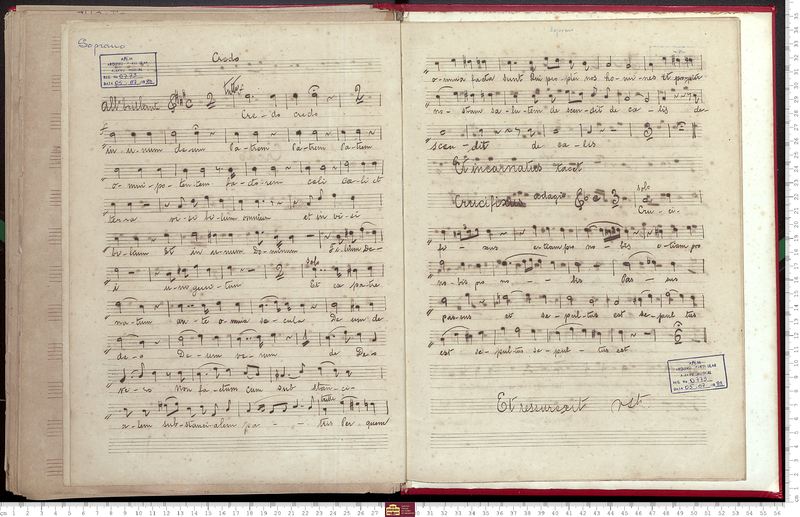 Soprano
Credo
all brillante
Tutti
Cre - do credo
in u - num deum Pa - trem Pa - trem Pa - trem
o - mni - po - ten tem fa - cto - rem celi
ter - ra vi - si bi - lium omnium et in vi - si
bi - lium Et in u - num Do - minum
i u - ni geni - tum
Solo
Et ex pa - tre
na - tum an - te o - mnia se - cula De um de
de - o De - um ve - rum de Deo
ve - ro Non fa - ctum cum sub stan - ci -
tutti
a - lem sub - stancialem pa - - tris Per quem
Soprano
o - mnia facta sunt Qui pro - pter nos ho - mi - nes et propter
no - stram sa - lu - tem de scen - dit de ce - lis de -
scen - dit de ce - lis
Et incarnatus Tacet
Crucifixus adagio
solo
Cru - ci -
fi - xus etiam pro no - bis etiam pro
no - bis pro no - - bis Pas - sus
passus et se - pul - tus est se - pul tus
est se - pul - tus se - pul - tus est
Et ressurexit